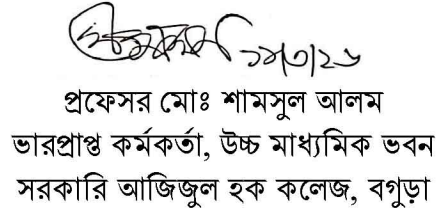 ১৯/৩/২৬
প্রফেসর মোঃ শামসুল আলম
ভারপ্রাপ্ত কর্মকর্তা, উচ্চ মাধ্যমিক ভবন
সরকারি আজিজুল হক কলেজ, বগুড়া